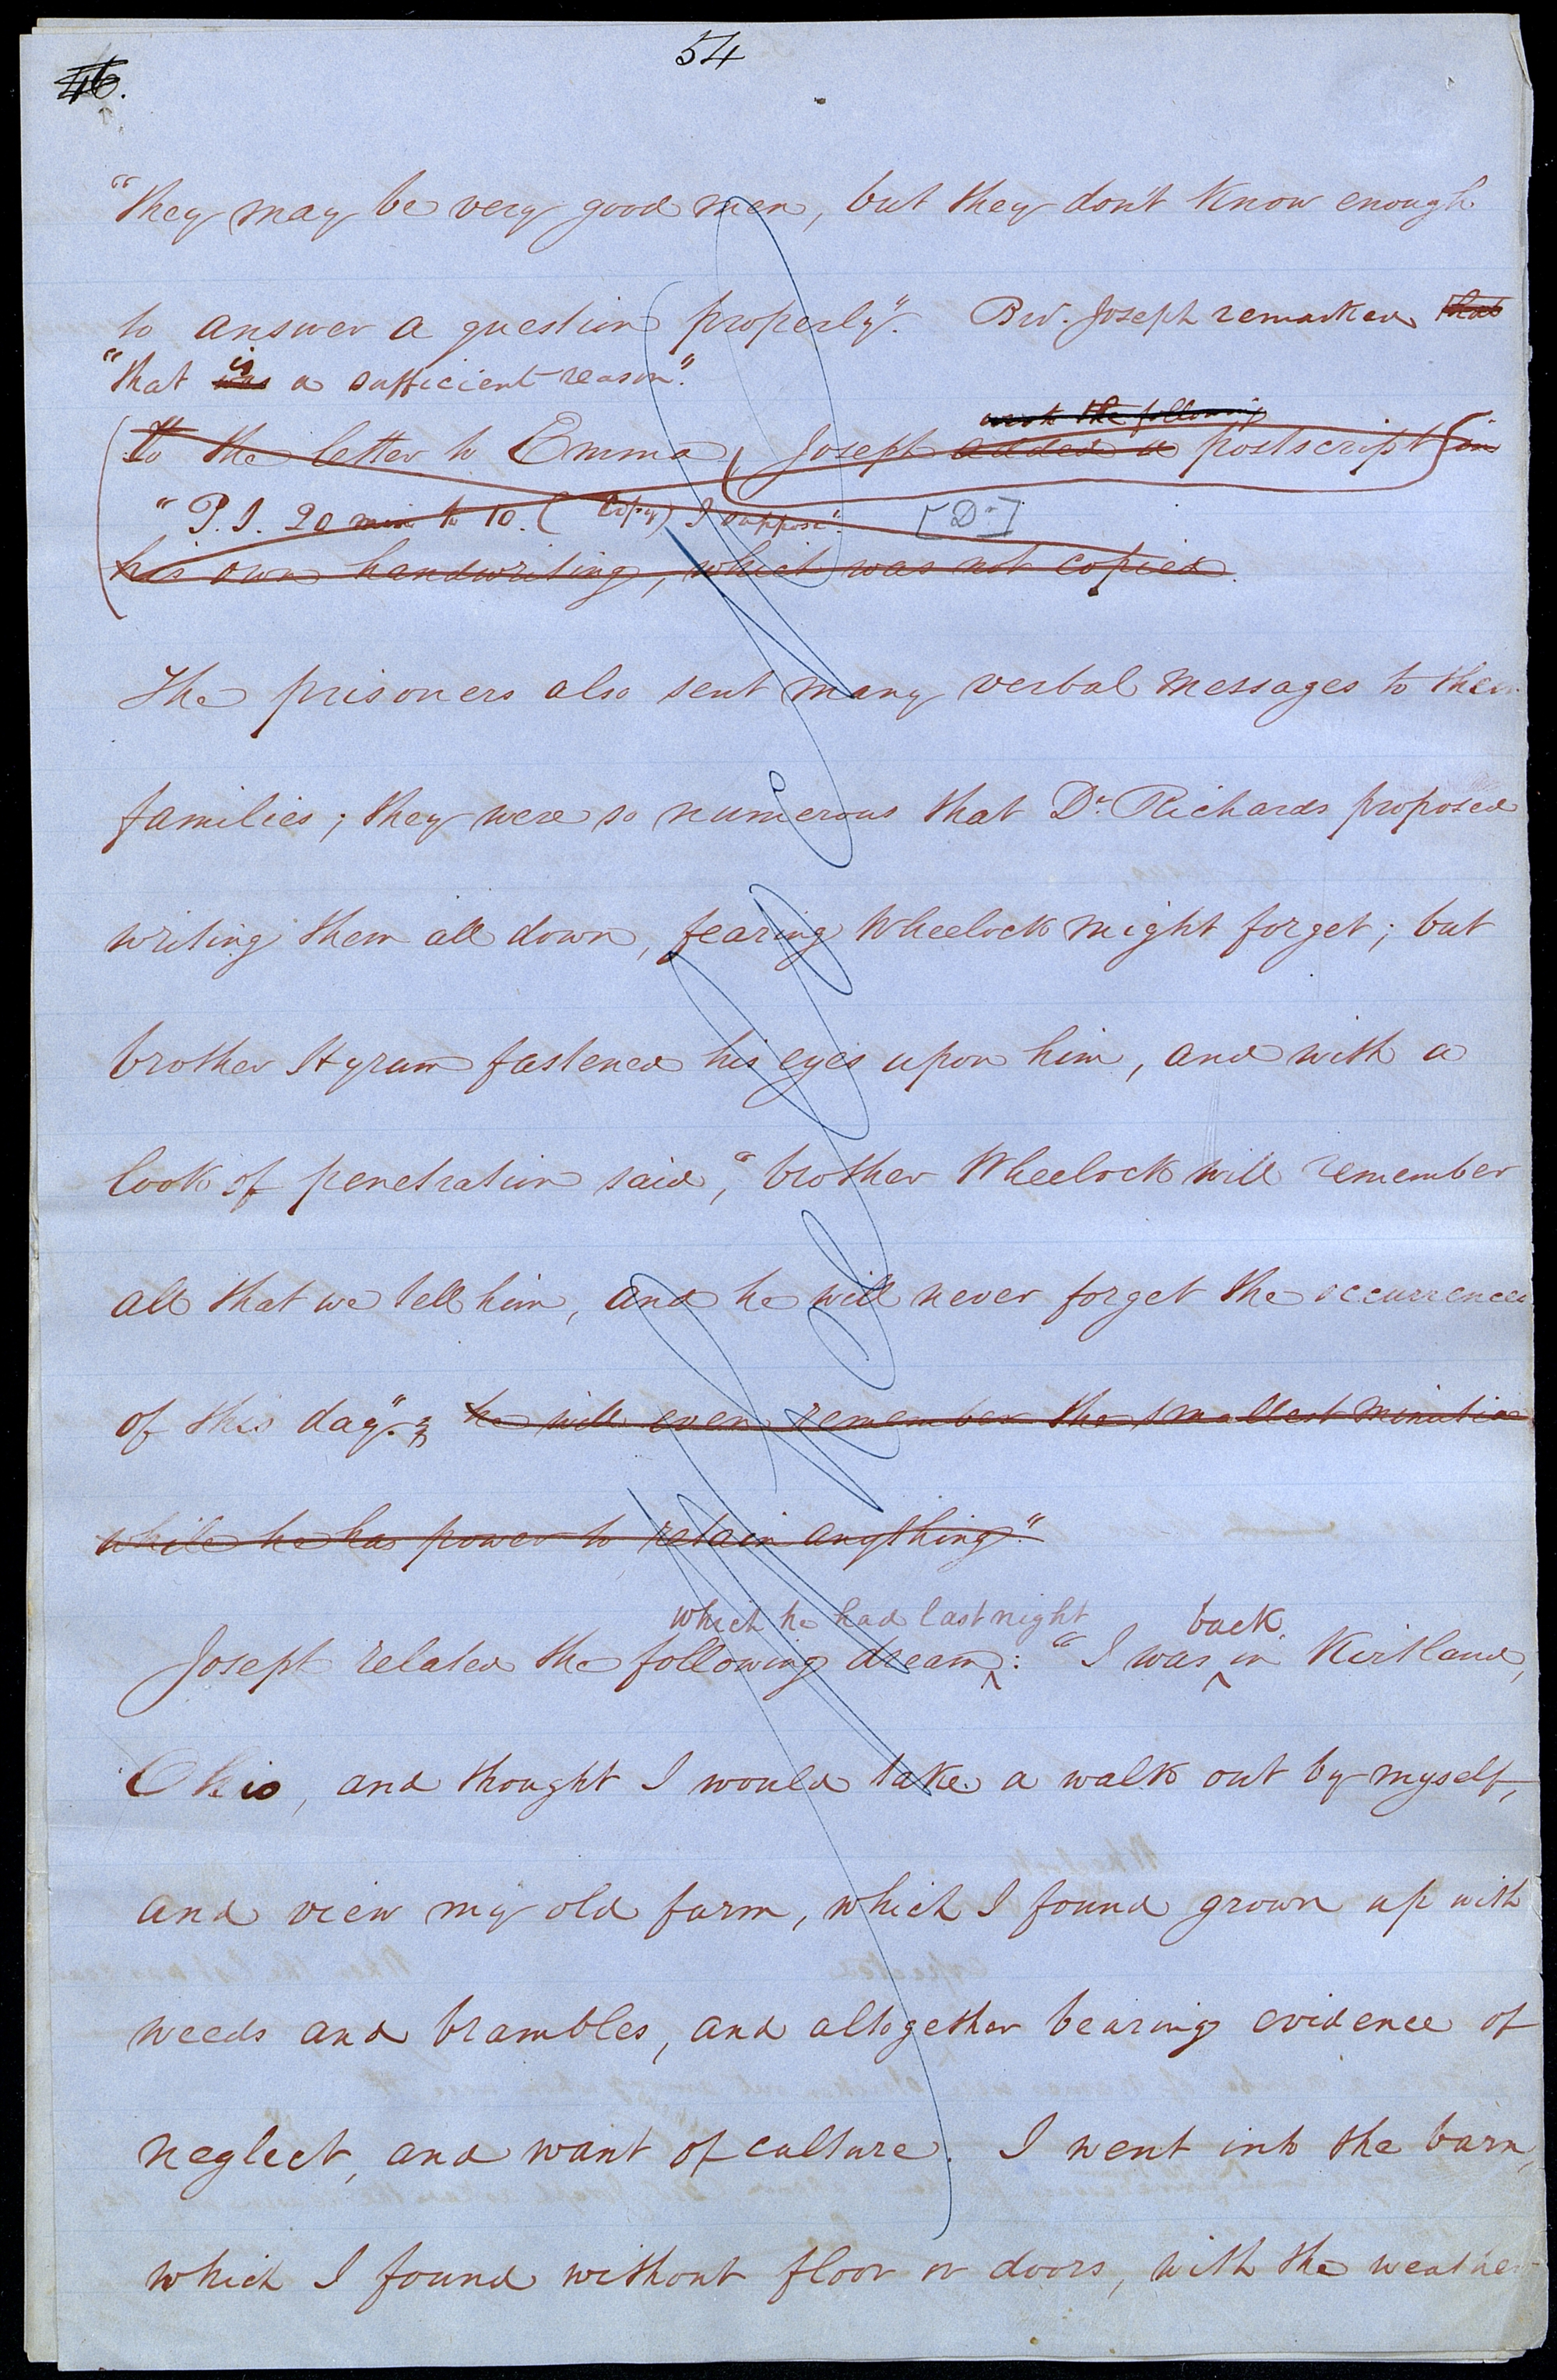 54
46.
"they may be very good men, but they don't know enough
to answer a question properly". Bro. Joseph remarked that
"that was is a sufficient reason".
wrote the following
To the letter to Emma Joseph added a postscript in
"P.S. 20 min to 10. (Copy) I suppose". [Dr]
his own handwriting, which was not copied.
The prisoners also sent many verbal messages to their
families; they were so numerous that Dr. Richards proposed
writing them all down, fearing Wheelock might forget; but
brother Hyrum fastened his eyes upon him, and with a
look of penetration said, "brother Wheelock will remember
all that we tell him, and he will never forget the occurrences
of this day". he will even remember the smallest minutiae
while he has power to retain anything."
which he had last night back
Joseph related the following dream: "I was in Kirtland,
Ohio, and thought I would take a walk out by myself,
and view my old farm, which I found grown up with
weeds and brambles, and altogether bearing evidence of
neglect, and want of culture. I went into the barn,
which I found without floor or doors, with the weather